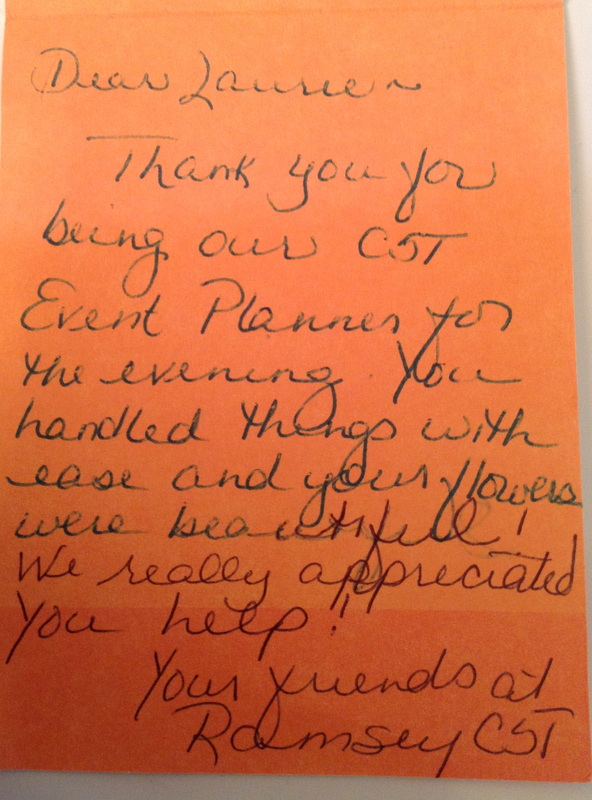 Dear Laurie ~
Thank you for
being our CST
Event Planner for
the evening. You
handled things with
ease and your flowers
were beautiful!
We really appreciated
you help!!
Your friends at
Ramsey CST